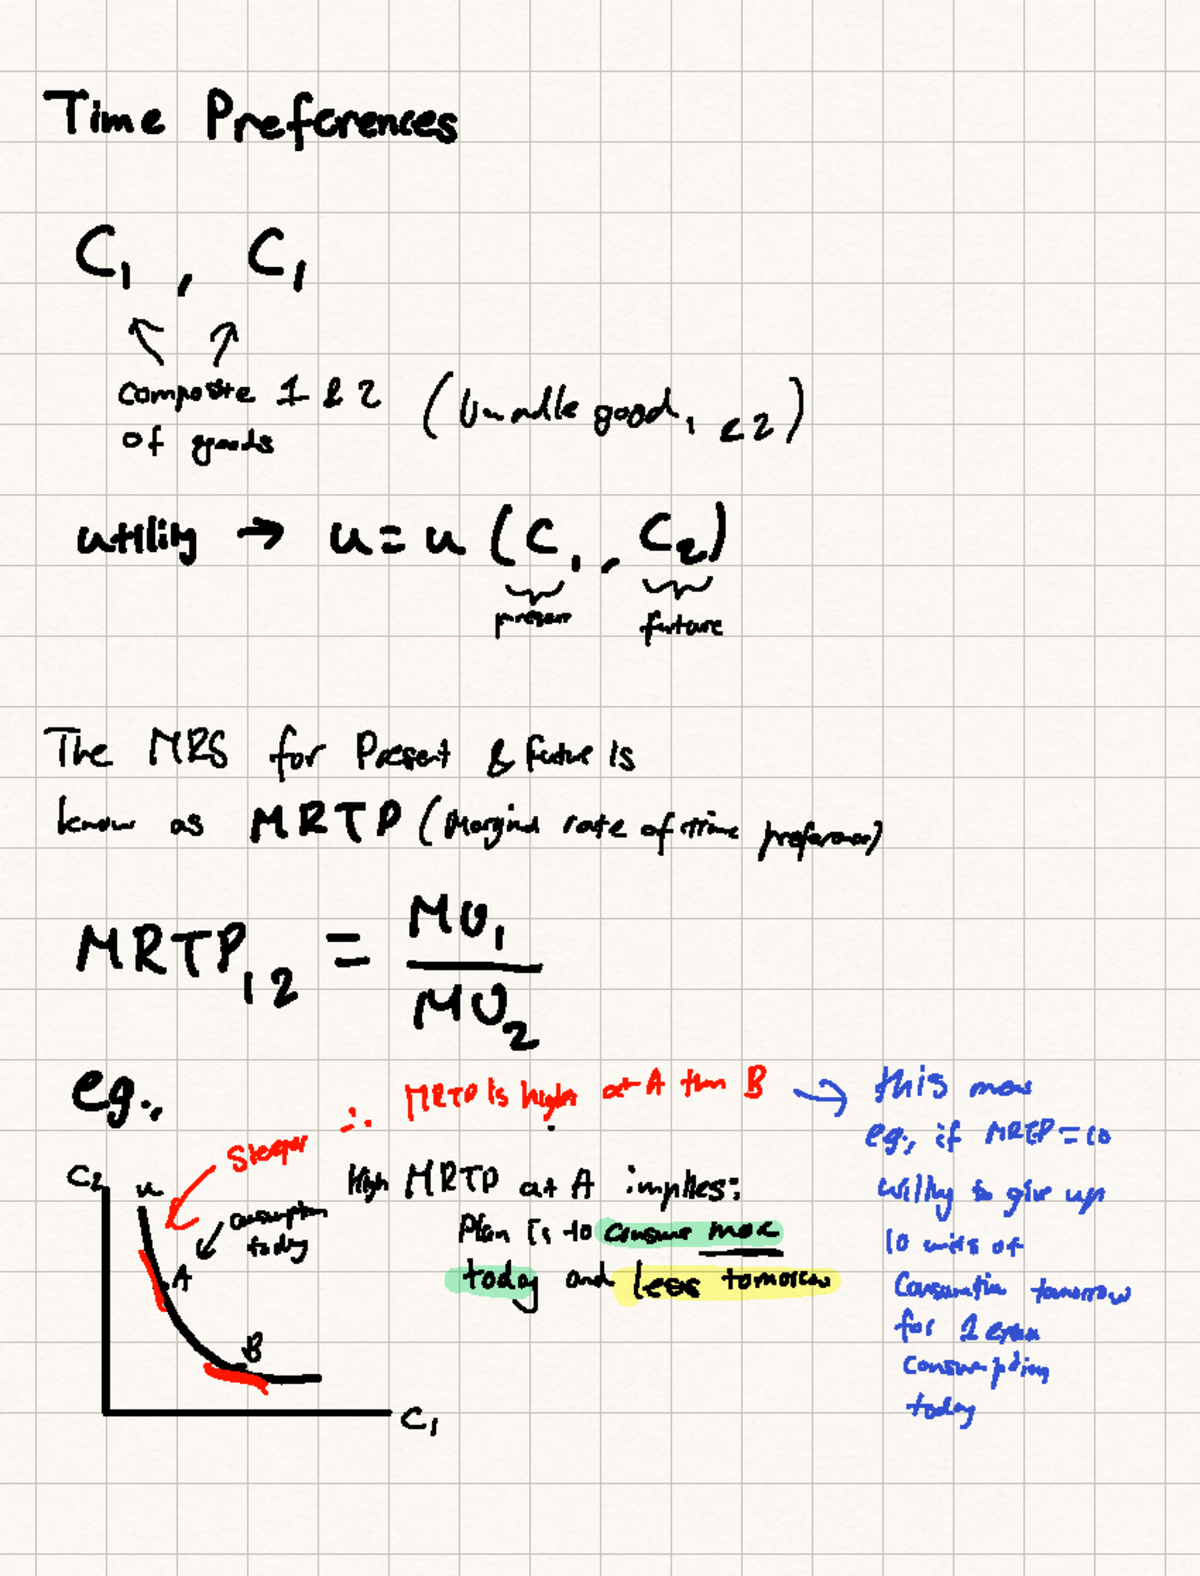 Time Preferences
C₁ , C₁
Composite 1 & 2
of goods
(bundle good₁, c2)
utility → u = u (C₁, C₂)
present future
The MRS for Present & future is
know as MRTP (Marginal rate of time preference)
MRTP₁₂ = MU₁
MU₂
eg.,
∴ MRTP is higher at A than B →
Steeper
C₂ u
consumption
today
A
B
C₁
High MRTP at A implies:
Plan is to consume more
today and less tomorrow
this
eg., if MRTP = 10
willing to give up
10 units of
Consumption tomorrow
for 1 extra
consumption
today